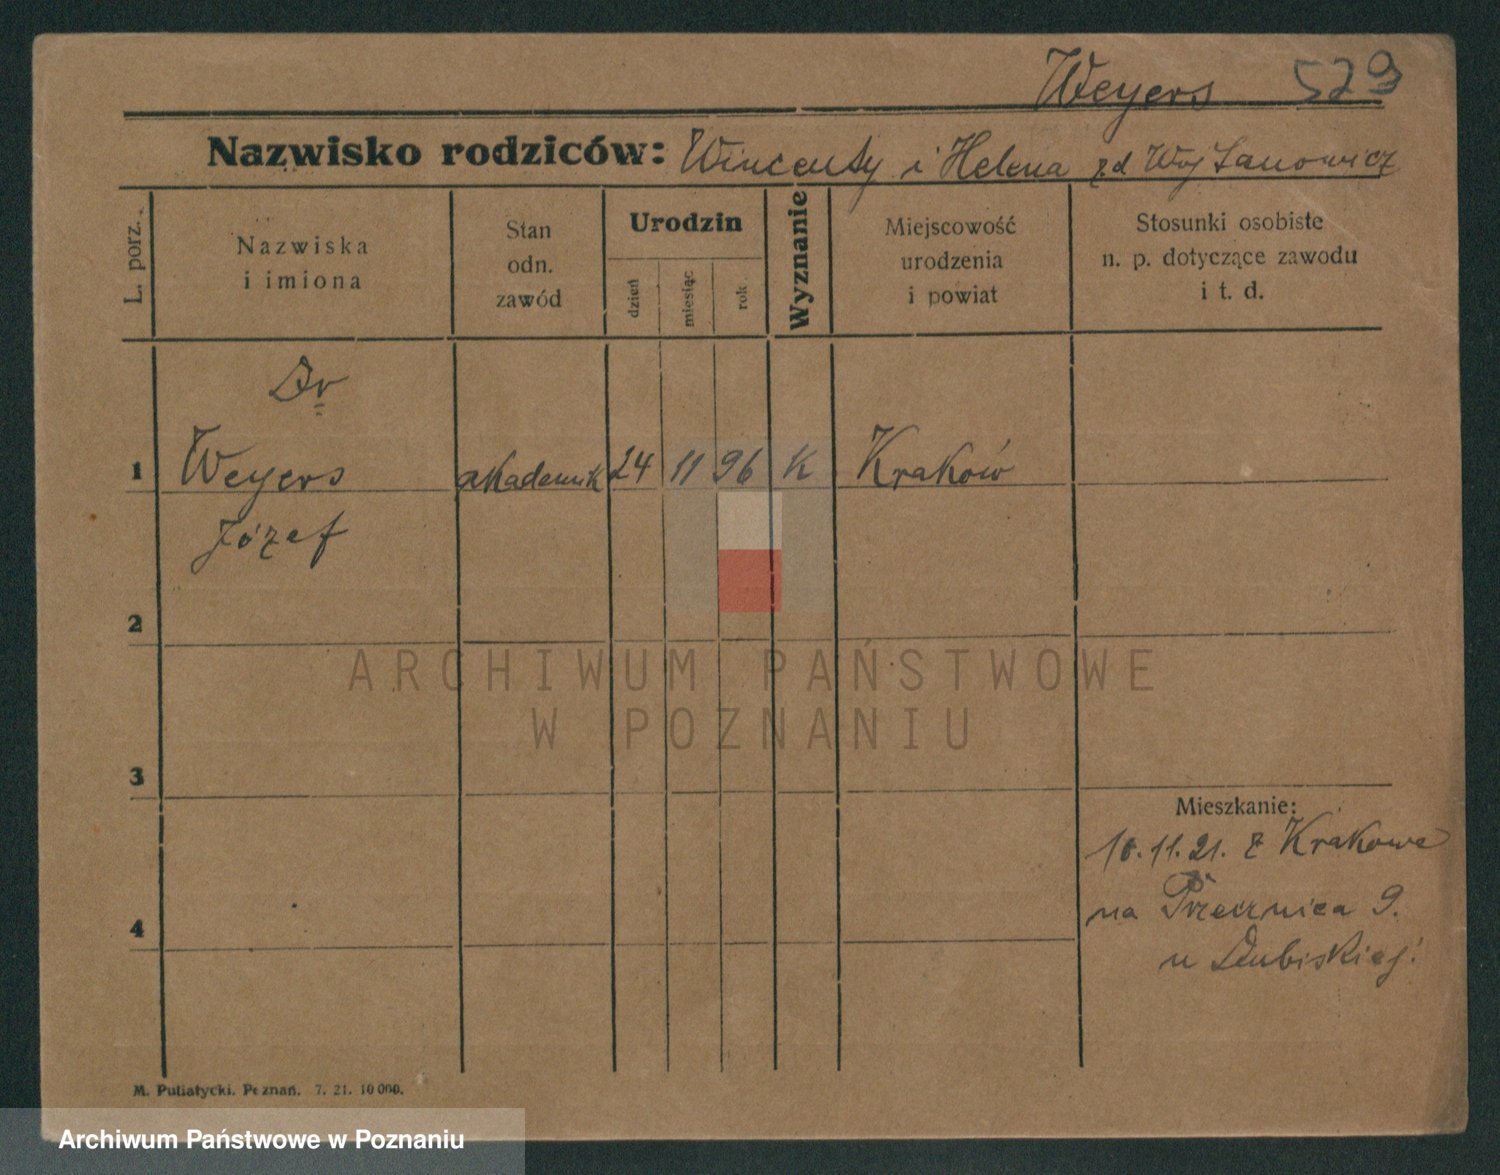 Weyers 529
Nazwisko rodziców: Wincenty i Helena zd Wojtanowicz
L. porz.
Nazwiska
i imiona
Stan
odn.
zawód
Urodzin
dzień
miesiąc
rok
Wyznanie
Miejscowość
urodzenia
i powiat
Stosunki osobiste
n. p. dotyczące zawodu
i t. d.
Dr
1 Weyers akademik 24 11 96 K Kraków
Józef
2
3
4
Mieszkanie:
10.11.21. z Krakowa
na Przecznica 9.
u Dubiskiej
M. Putiatycki. Poznań. 7. 21. 10 000.
ARCHIWUM PAŃSTWOWE
W POZNANIU
Archiwum Państwowe w Poznaniu